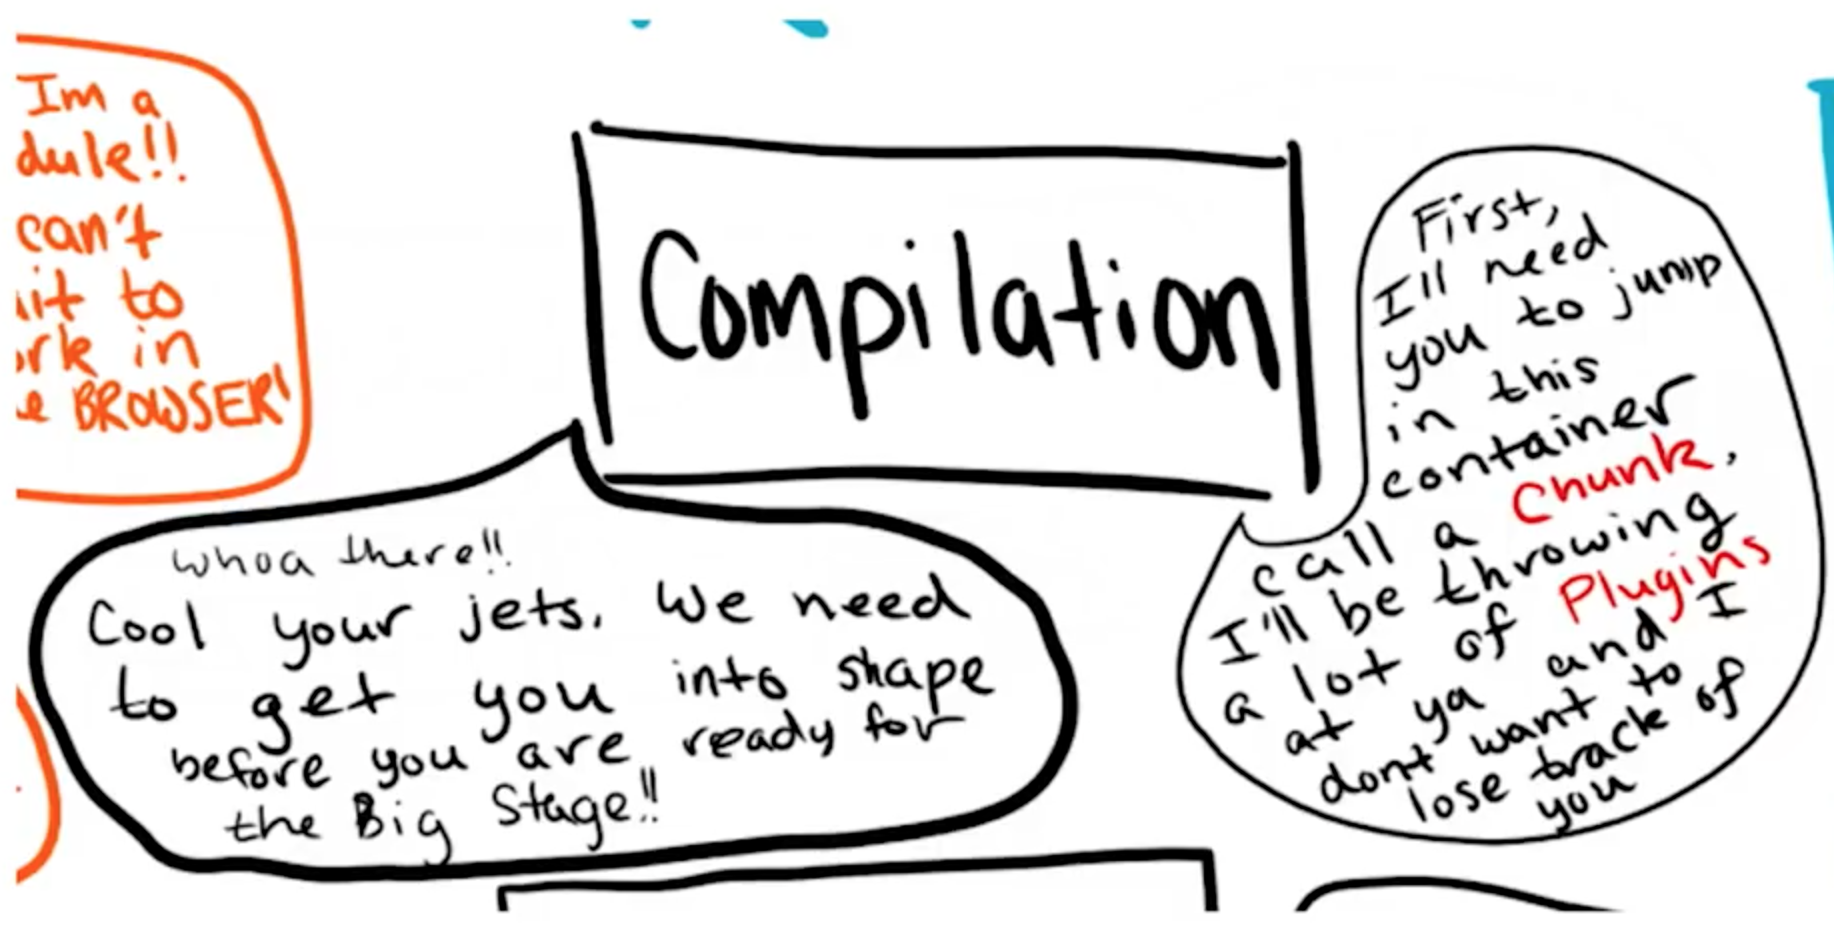 Im a
dule!!
can't
it to
rk in
e BROWSER!
Compilation
whoa there!!
Cool your jets. We need
to get you into shape
before you are ready for
the Big Stage!!
First,
I'll need
you to jump
in this
container
call a Chunk.
I'll be throwing
a lot of Plugins
at ya and I
dont want to
lose track of
you